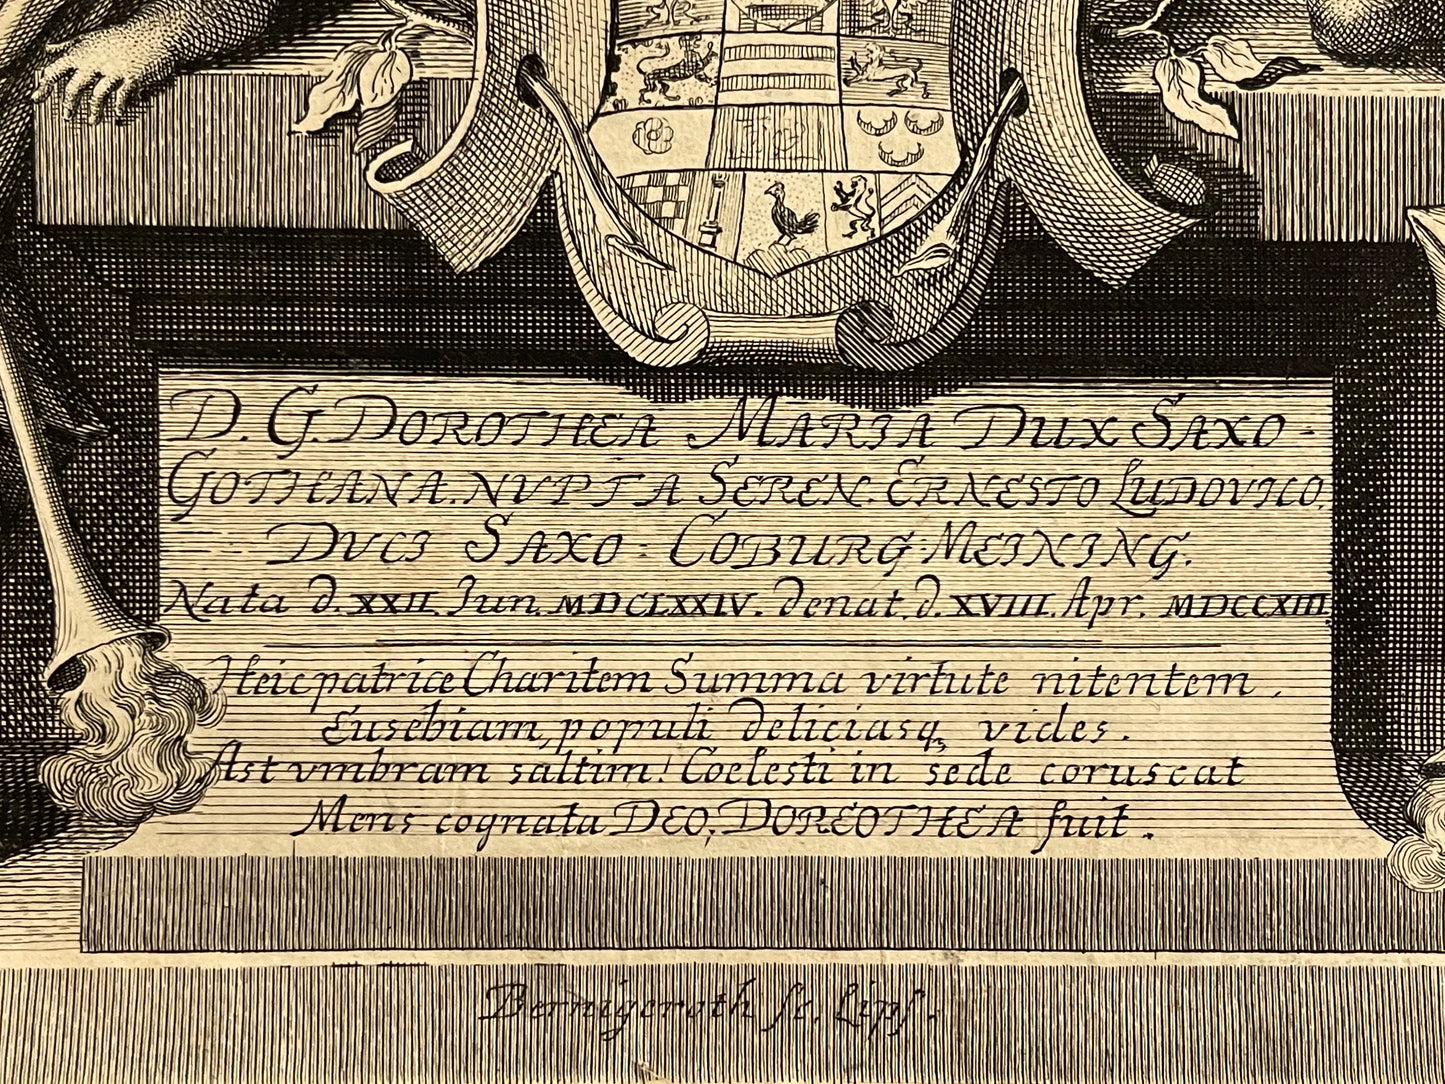 D. G. DOROTHEA MARIA DUX SAXO-
GOTHANA. NVPTA SEREN. ERNESTO LUDOVICO.
DVCI SAXO=COBURG=MEINING.
Nata d. XXII. Jun. MDCLXXIV. denat. d. XVIII. Apr. MDCCXIII.
Heic patriæ Charitem Summa virtute nitentem,
Eusebiam, populi deliciasq, vides.
Ast vmbram saltim! Coelesti in sede coruscat
Mens cognata DEO, DOREOTHEA fuit.
Bernigeroth sc. Lips.